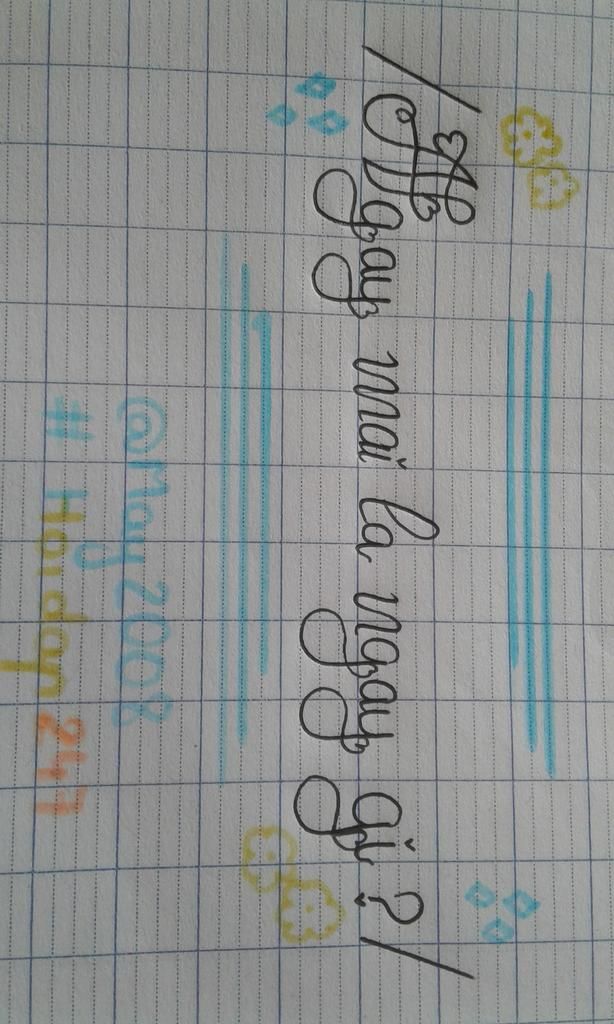 /Ngay mai la ngay gì?/
@May2008
# Hoidap247